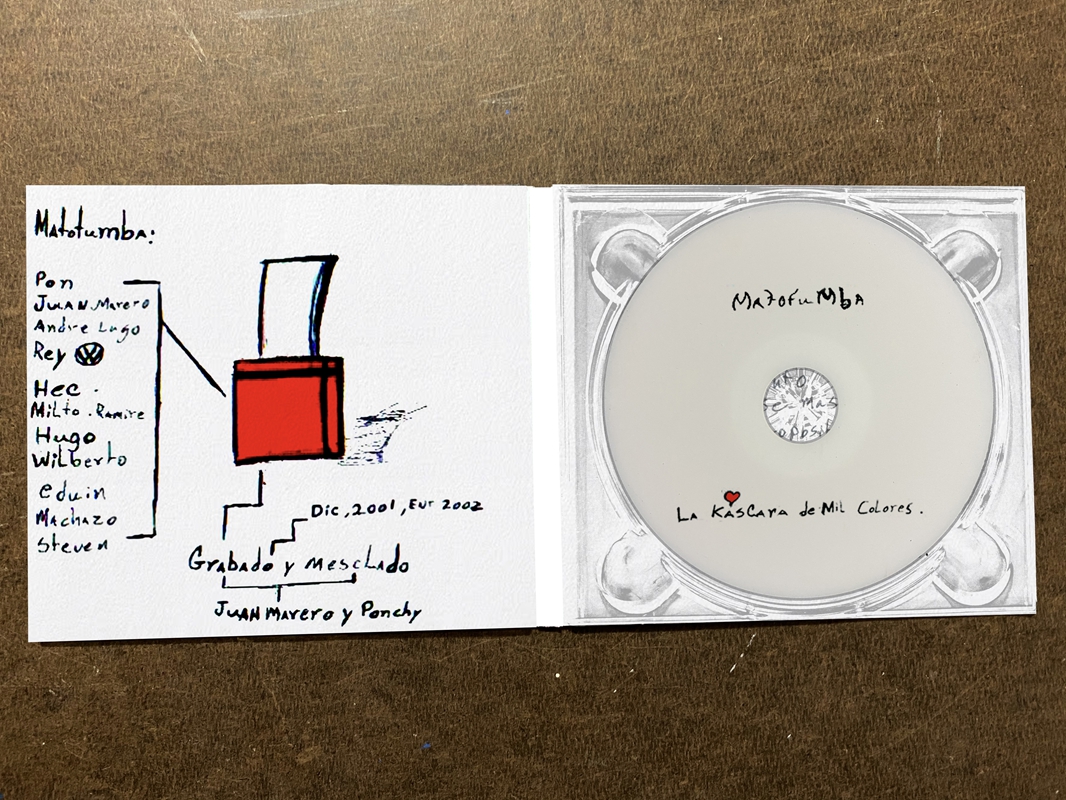 Matotumba:
Pon
JUAN.Marero
Andre Lugo
Rey VW
Hec.
Milto.Ramire
Hugo
Wilberto
eduin
Machazo
Steven
Dic,2001, Eur 2002
Grabado y Mesclado
JUAN Marero y Ponchy
MaTofuMbA
La KásCara de Mil Colores.